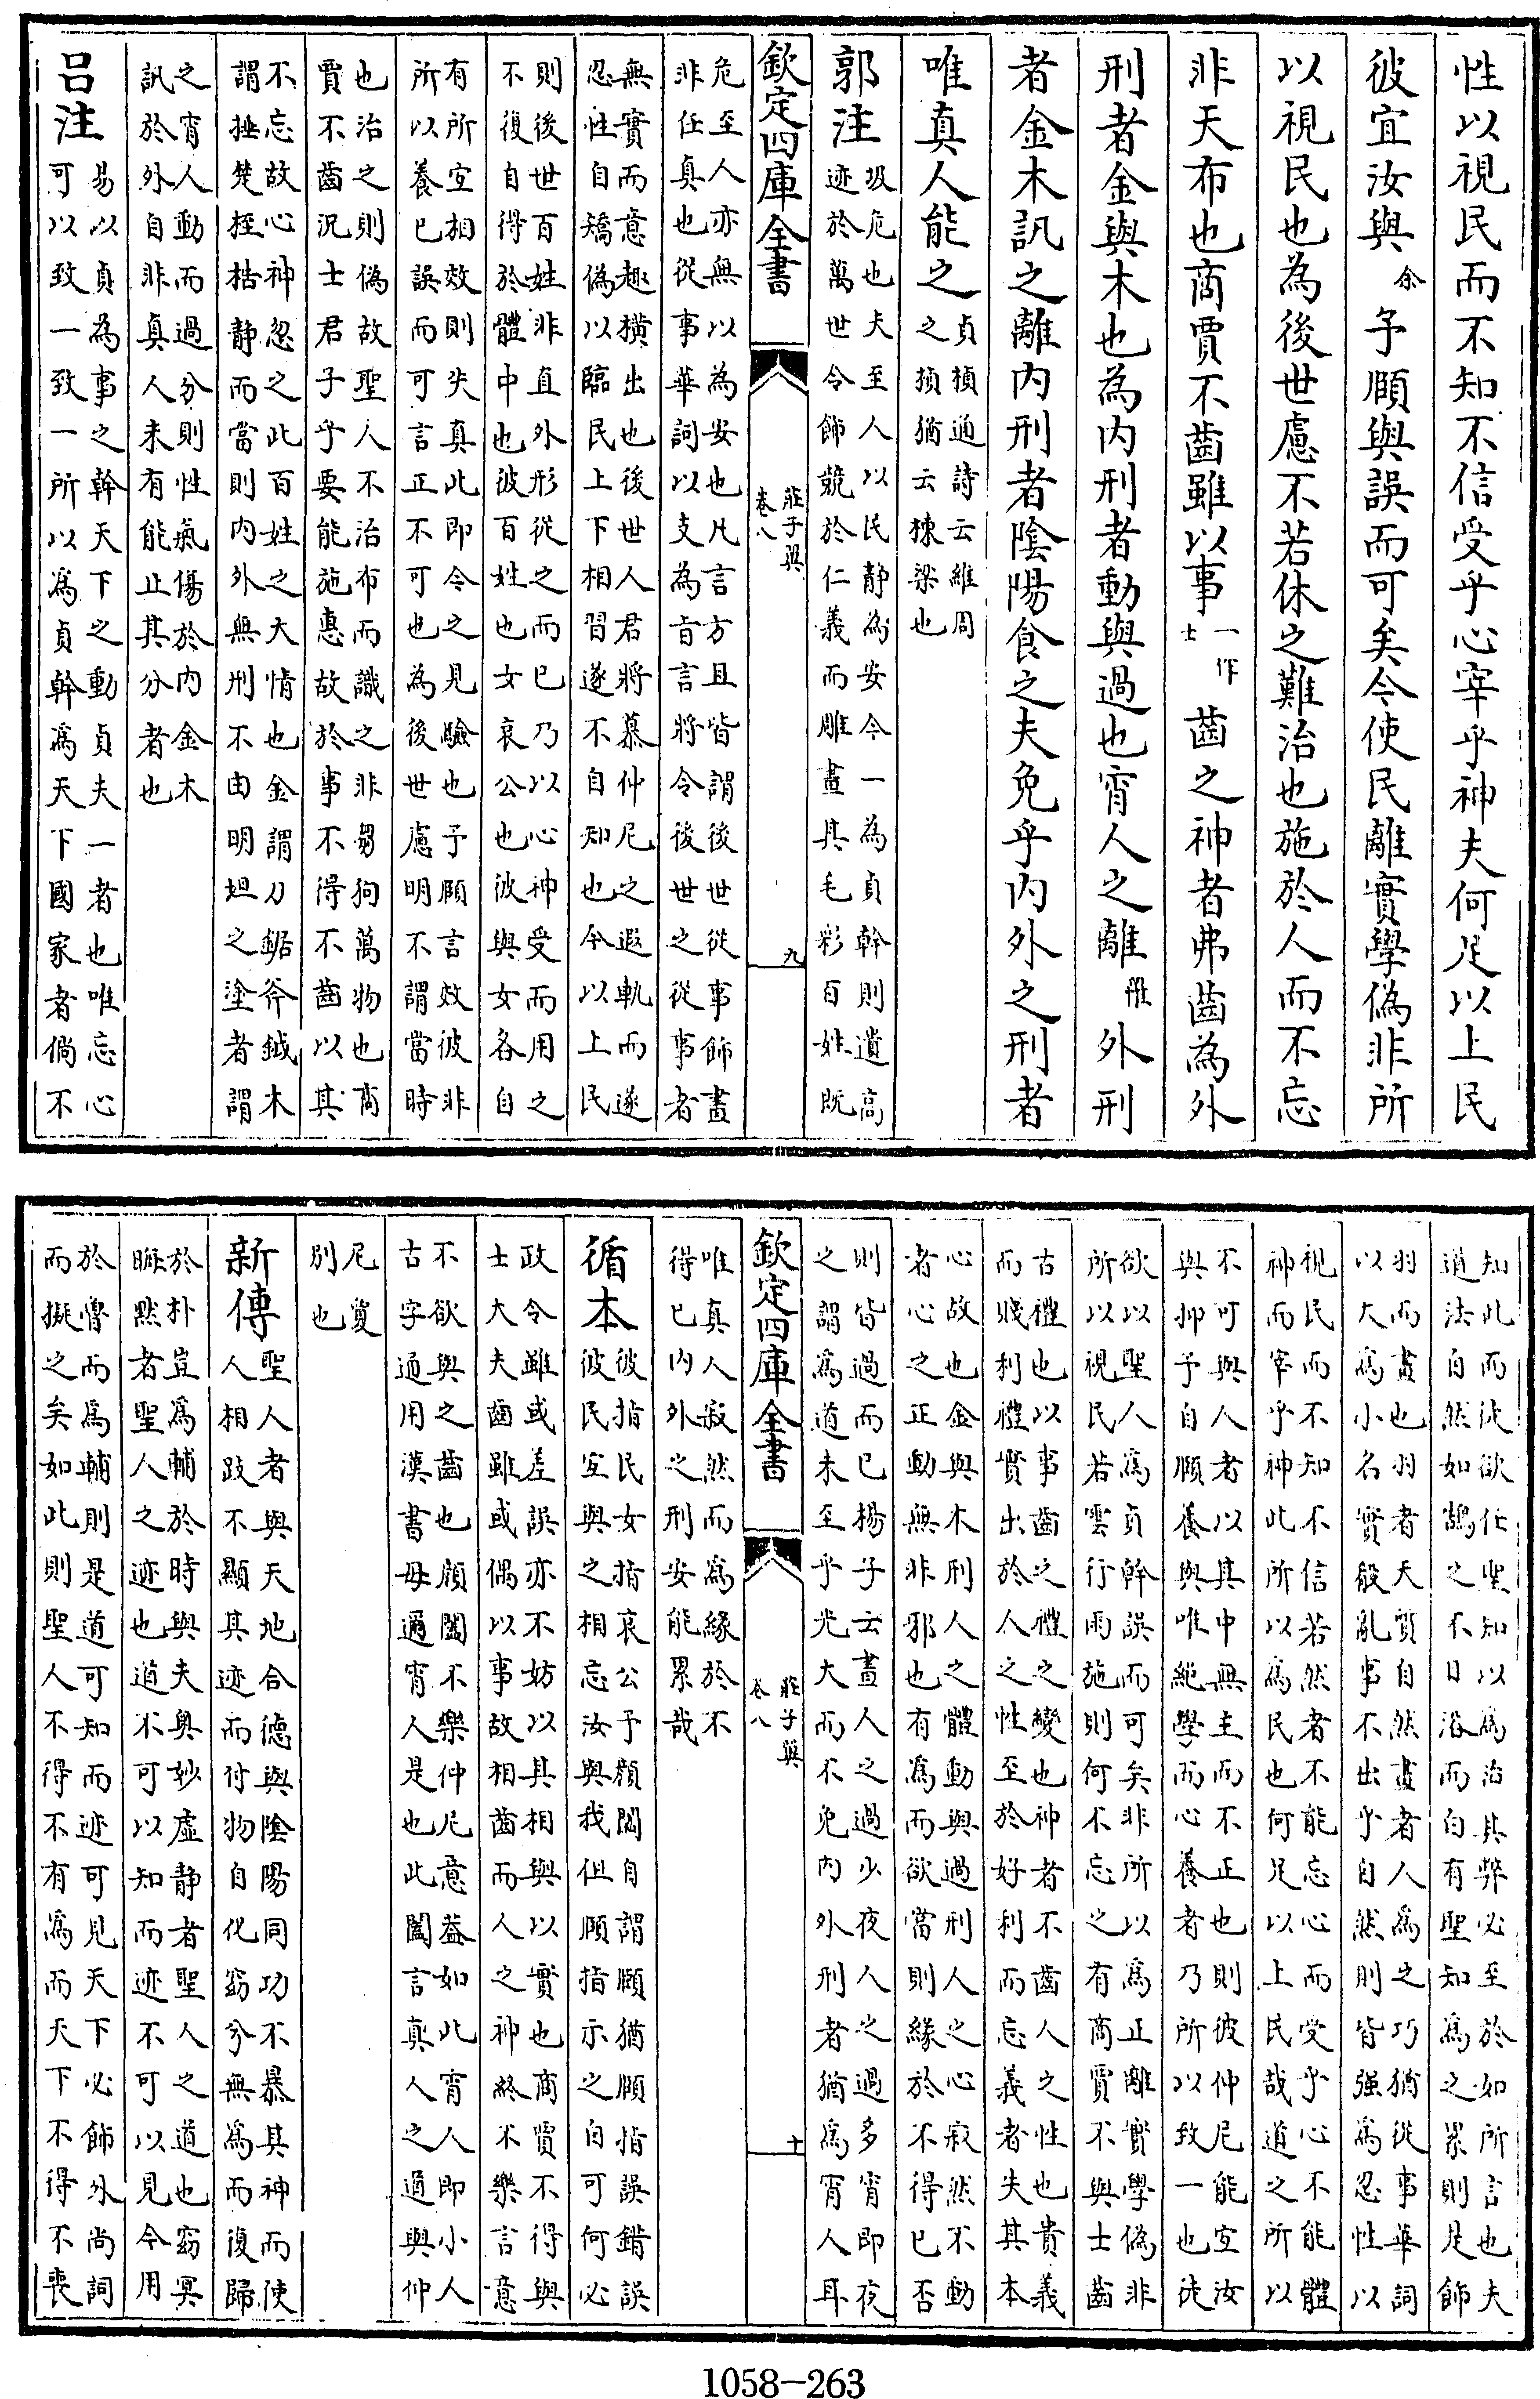 性以視民而不知不信受乎心宰乎神夫何足以上民
彼宜汝與余予頤與誤而可矣今使民離實學偽非所
以視民也為後世慮不若休之難治也施於人而不忘
非天布也商賈不齒雖以事一作士齒之神者弗齒為外
刑者金與木也為内刑者動與過也宵人之離罹外刑
者金木訊之離内刑者陰陽食之夫免乎内外之刑者
唯真人能之貞楨通詩云維周
之楨猶云棟梁也
郭注圾危也夫至人以民静為安今一為貞幹則遺高
迹於萬世令飾競於仁義而雕畫其毛彩百姓既
欽定四庫全書
莊子翼
卷八
九
危至人亦無以為安也凡言方且皆謂後世從事飾畫
非任真也從事華詞以支為旨言將令後世之從事者
無實而意趣橫出也後世人君將慕仲尼之遐軌而遂
忍性自矯偽以臨民上下相習遂不自知也今以上民
則後世百姓非直外形從之而已乃以心神受而用之
不復自得於體中也彼百姓也女哀公也彼與女各自
有所宜相效則失真此即今之見驗也予頤言效彼非
所以養已誤而可言正不可也為後世慮明不謂當時
也治之則偽故聖人不治布而識之非芻狗萬物也商
賈不齒況士君子乎要能施惠故於事不得不齒以其
不忘故心神忽之此百姓之大情也金謂刀鋸斧鉞木
謂捶楚桎梏静而當則内外無刑不由明坦之塗者謂
之宵人動而過分則性氣傷於内金木
訊於外自非真人未有能止其分者也
吕注易以貞為事之幹天下之動貞夫一者也唯忘心
可以致一致一所以爲貞幹爲天下國家者倘不
知此而徒欲任聖知以爲治其弊必至於如所言也夫
道法自然如鵠之不日浴而白有聖知爲之累則是飾
羽而畫也羽者天質自然畫者人爲之巧猶從事華詞
以大爲小名實殽亂事不出乎自然則皆强爲忍性以
視民而不知不信若然者不能忘心而受乎心不能體
神而宰乎神此所以爲民也何足以上民哉道之所以
不可與人者以其中無主而不正也則彼仲尼能宜汝
與抑予自頤養與唯絕學而心養者乃所以致一也徒
欲以聖人爲貞幹誤而可矣非所以爲正離實學偽非
所以視民若雲行雨施則何不忘之有商賈不與士齒
古禮也以事齒之禮之變也神者不齒人之性也貴義
而賤利禮實出於人之性至於好利而忘義者失其本
心故也金與木刑人之體動與過刑人之心寂然不動
者心之正動無非邪也有爲而欲當則緣於不得已否
則皆過而已楊子云晝人之過少夜人之過多宵即夜
之謂爲道未至乎光大而不免内外刑者猶爲宵人耳
欽定四庫全書
莊子翼
卷八
十
唯真人寂然而爲緣於不
得已内外之刑安能累哉
循本彼指民女指哀公予顏闔自謂頤猶頤指誤錯誤
彼民宜與之相忘汝與我但頤指示之自可何必
政令雖或差誤亦不妨以其相與以實也商賈不得與
士大夫齒雖或偶以事故相齒而人之神終不樂言意
不欲與之齒也顔闔不樂仲尼意蓋如此宵人即小人
古字通用漢書毋邇宵人是也此闔言真人之道與仲
尼實
别也
新傳聖人者與天地合德與陰陽同功不暴其神而使
人相跂不顯其迹而付物自化窈兮無爲而復歸
於朴豈爲輔於時與夫奥妙虚静者聖人之道也窈冥
晦默者聖人之迹也道不可以知而迹不可以見今用
於魯而爲輔則是道可知而迹可見天下必飾外尚詞
而擬之矣如此則聖人不得不有爲而天下不得不喪
1058-263